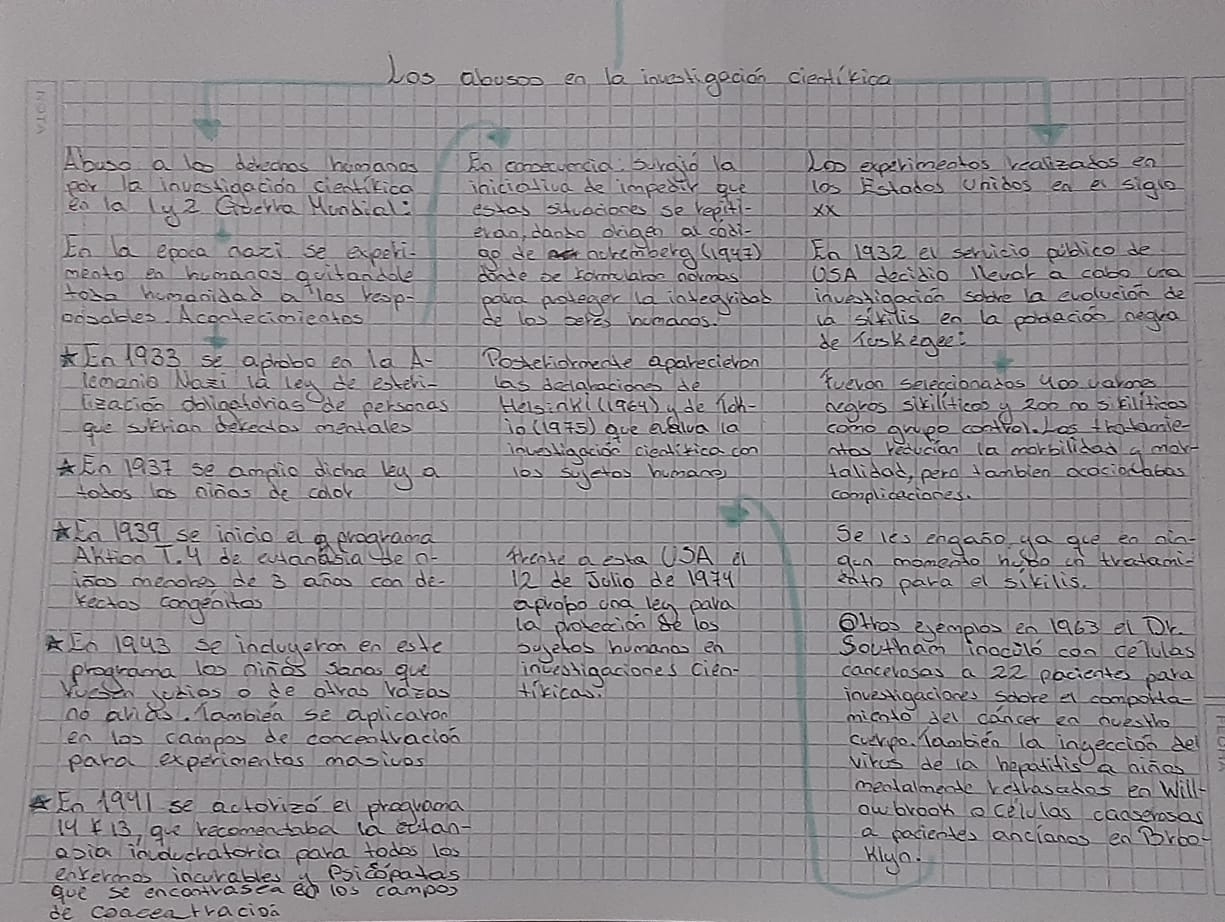 Los abusos en la investigación científica
NOTA
Abuso a los derechos humanos
por la investigación científica
en la 1y2 Guerra Mundial:
En la epoca nazi se experi-
mento en humanos quitandole
toda humanidad a los resp-
onsables. Acontecimientos
★En 1933 se aprobo en la A-
lemania Nazi la ley de esteri-
lización obligatorias de personas
que sufrian defectos mentales
★En 1937 se amplio dicha ley a
todos los niños de color
★En 1939 se inicio el programa
Aktion T.4 de eutanasia de n-
iños menores de 3 años con de-
fectos congénitos
★En 1943 se incluyeron en este
programa los niños sanos que
fuesen judios o de otras razas
no arias. Tambien se aplicaron
en los campos de concentración
para experimentos masivos
★En 1941 se autorizó el programa
14 F 13, que recomendaba la eutan-
asia involucratoria para todos los
enfermos incurables y psicópatas
que se encontrasen en los campos
de concentración
En consecuencia: Surgió la
iniciativa de impedir que
estas situaciones se repiti-
eran, dando origen al códi-
go de nuremberg (1947)
donde se formularon normas
para proteger la integridad
de los seres humanos.
Posteriormente aparecieron
las declaraciones de
Helsinki (1964) y de Tok-
io (1975) que evalua la
investigación cientifica con
los sujetos humanos
frente a esta USA el
12 de Julio de 1974
aprobo una ley para
la protección de los
sujetos humanos en
investigaciones cien-
tíficas.
Los experimentos realizados en
los Estados Unidos en el siglo
XX
En 1932 el servicio público de
USA decidio llevar a cabo una
investigación sobre la evolución de
la sífilis en la población negra
de Tuskegee:
fueron seleccionados 400 varones
negros sifilíticos y 200 no sifilíticos
como grupo control. Los tratamie-
ntos reducian la morbilidad y mor-
talidad, pero tambien ocacionabas
complicaciones.
Se les engaño ya que en nin-
gun momento hubo un tratami-
ento para el sífilis.
Otros ejemplos en 1963 el Dr.
Southam inoculó con células
cancelosas a 22 pacientes para
investigaciones sobre el comporta-
miento del cáncer en nuestro
cuerpo. También la ingección del
virus de la hepatitis a niños
mentalmente retrasados en Will-
owbrook o células canserosas
a pacientes ancianos en Broo-
klyn.